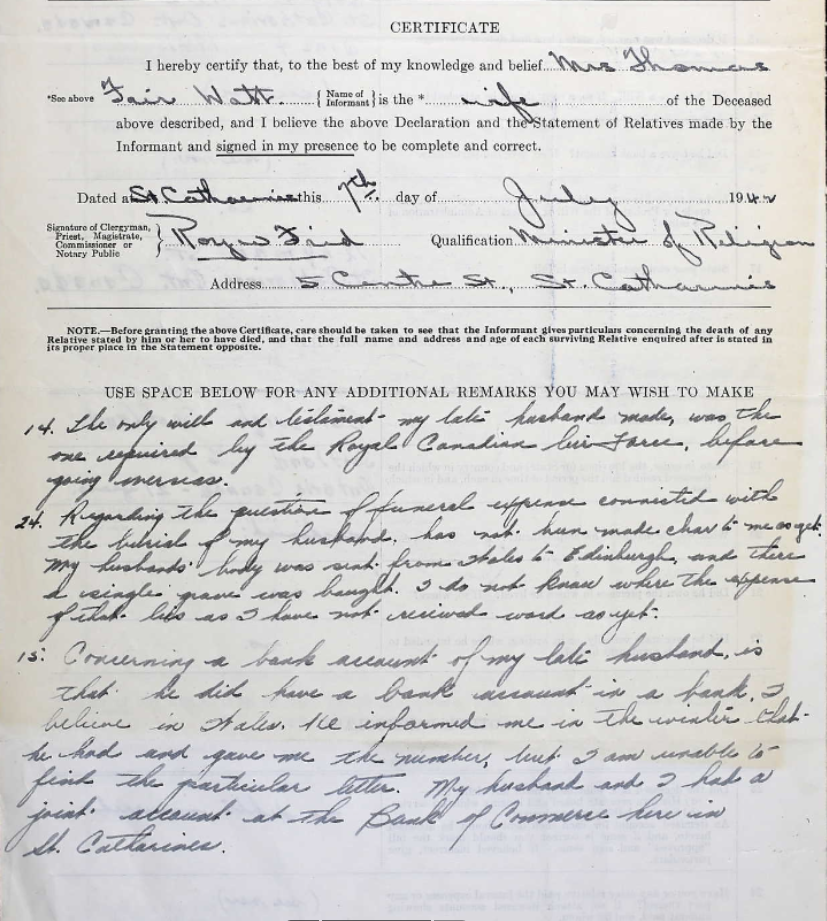 CERTIFICATE
I hereby certify that, to the best of my knowledge and belief Mrs Thomas
*See above Fair Watt. { Name of Informant } is the * wife of the Deceased
above described, and I believe the above Declaration and the Statement of Relatives made by the
Informant and signed in my presence to be complete and correct.
Dated at St. Catharines this 7th. day of July 1942
Signature of Clergyman, Priest, Magistrate, Commissioner or Notary Public } Roy w Frid Qualification Minister of Religion
Address 5 Centre St., St. Catharines
NOTE.—Before granting the above Certificate, care should be taken to see that the Informant gives particulars concerning the death of any
Relative stated by him or her to have died, and that the full name and address and age of each surviving Relative enquired after is stated in
its proper place in the Statement opposite.
USE SPACE BELOW FOR ANY ADDITIONAL REMARKS YOU MAY WISH TO MAKE
14. The only will and testament my late husband made, was the
one required by the Royal Canadian Air Force, before
going overseas.
24. Regarding the question of funeral expense connected with
the burial of my husband, has not been made clear to me as yet.
My husbands body was sent from Wales to Edinburgh, and there
a single grave was bought. I do not know where the expense
of that lies as I have not recieved word as yet.
15. Concerning a bank account of my late husband, is
that he did have a bank account in a bank, I
believe in Wales. He informed me in the winter that
he had and gave me the number, but I am unable to
find the particular letter. My husband and I had a
joint account at the Bank of Commerce here in
St. Catharines.